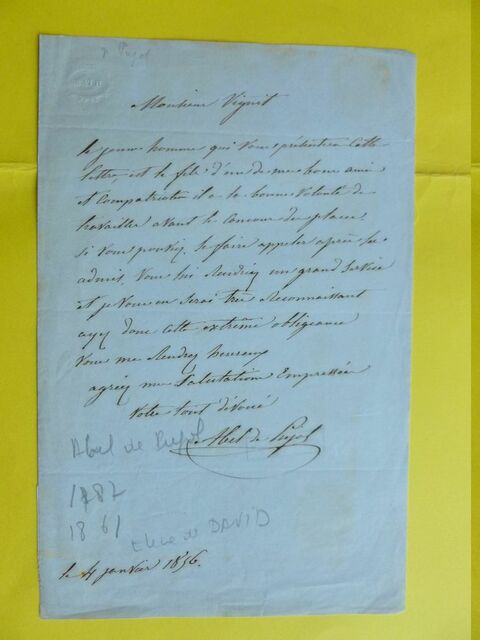 Pujol
Monsieur Vignit
le jeune homme qui vous présentera cette
lettre, est le fils d'un de mes bons amis
et compatriotes il a la bonne volonté de
travailler avant le concour des places
si vous pouviez le faire appeler après les
admis, vous lui rendriez un grand service
et je vous en serai très reconnaissant
ayez donc cette extrême obligeance
vous me rendrez heureux
agréez mes salutations empressées
votre tout dévoué
Abel de Pujol
Abel de Pujol
1782
1861
élève de DAVID
le 4 janvier 1856.